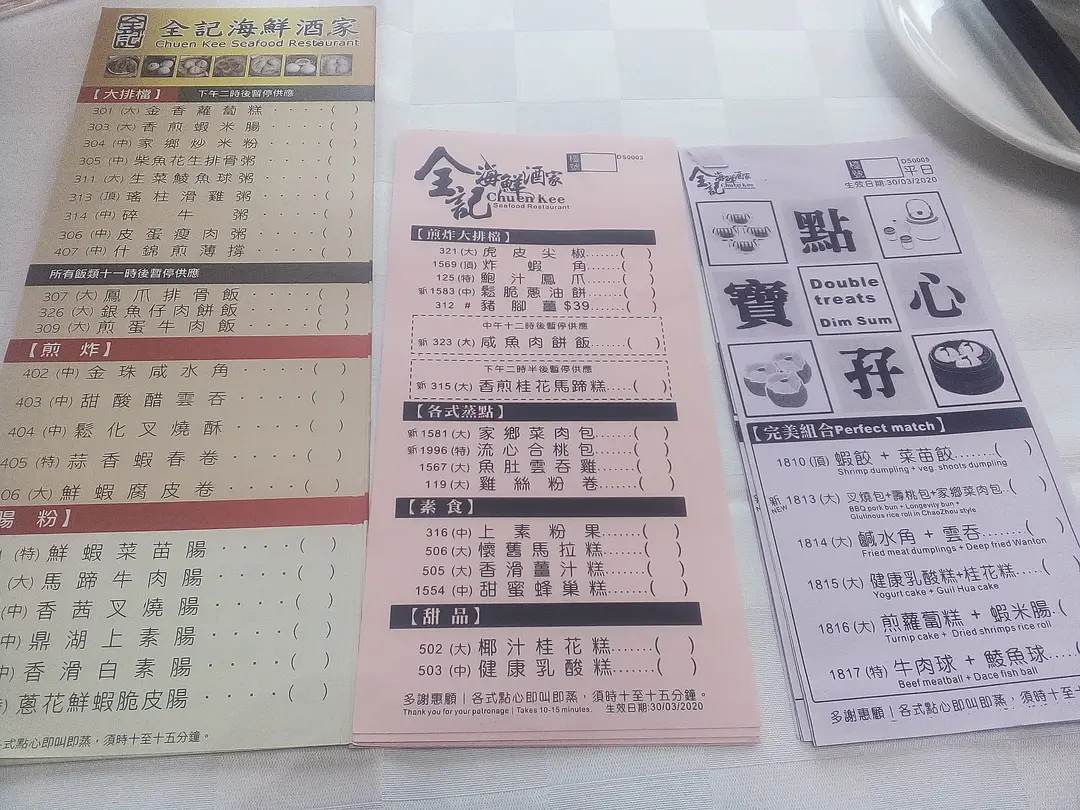 全記
全記海鮮酒家
Chuen Kee Seafood Restaurant
【大排檔】 下午二時後暫停供應
301 (大) 金香蘿蔔糕 ‧‧‧‧( )
303 (大) 香煎蝦米腸 ‧‧‧‧( )
304 (中) 家鄉炒米粉 ‧‧‧‧( )
305 (中) 柴魚花生排骨粥 ‧‧‧( )
311 (大) 生菜鯪魚球粥 ‧‧‧‧( )
313 (頂) 瑤柱滑雞粥 ‧‧‧‧( )
314 (中) 碎牛粥 ‧‧‧‧( )
306 (中) 皮蛋瘦肉粥 ‧‧‧‧( )
407 (中) 什錦煎薄撐 ‧‧‧‧( )
所有飯類十一時後暫停供應
307 (大) 鳳爪排骨飯 ‧‧‧‧( )
326 (大) 銀魚仔肉餅飯 ‧‧‧‧( )
309 (大) 煎蛋牛肉飯 ‧‧‧‧( )
【煎炸】
402 (中) 金珠咸水角 ‧‧‧‧( )
403 (中) 甜酸醋雲吞 ‧‧‧‧( )
404 (中) 鬆化叉燒酥 ‧‧‧‧( )
405 (特) 蒜香蝦春卷 ‧‧‧‧( )
06 (大) 鮮蝦腐皮卷 ‧‧‧‧( )
腸粉】
(特) 鮮蝦菜苗腸 ‧‧‧‧( )
(大) 馬蹄牛肉腸 ‧‧‧‧( )
(中) 香茜叉燒腸 ‧‧‧‧( )
中) 鼎湖上素腸 ‧‧‧‧( )
中) 香滑白素腸 ‧‧‧‧( )
) 蔥花鮮蝦脆皮腸 ‧‧‧‧( )
各式點心即叫即蒸，須時十至十五分鐘。
全記海鮮酒家
Chuen Kee
Seafood Restaurant
檯號 DS0003
【煎炸大排檔】
321 (大) 虎皮尖椒......( )
1569 (頂) 炸蝦角......( )
125 (特) 鮑汁鳳爪......( )
新1583 (中) 鬆脆蔥油餅......( )
312 # 豬腳薑$39......( )
中午十二時後暫停供應
新 323 (大) 咸魚肉餅飯......( )
下午二時半後暫停供應
新 315 (大) 香煎桂花馬蹄糕....( )
【各式蒸點】
新1581 (大) 家鄉菜肉包......( )
新1996 (特) 流心合桃包......( )
1567 (大) 魚肚雲吞雞......( )
119 (大) 雞絲粉卷......( )
【素食】
316 (中) 上素粉果......( )
506 (大) 懷舊馬拉糕......( )
505 (大) 香滑薑汁糕......( )
1554 (中) 甜蜜蜂巢糕......( )
【甜品】
502 (大) 椰汁桂花糕......( )
503 (中) 健康乳酸糕......( )
多謝惠顧 | 各式點心即叫即蒸，須時十至十五分鐘。
Thank you for your patronage | Takes 10-15 minutes. 生效日期:30/03/2020
全記海鮮酒家
Chuen Kee
檯號 DS0005
平日
生效日期:30/03/2020
點
寶 Double treats Dim Sum 心
孖
【完美組合Perfect match】
1810 (頂) 蝦餃 + 菜苗餃......( )
Shrimp dumpling + veg. shoots dumpling
新 NEW 1813 (大) 叉燒包+壽桃包+家鄉菜肉包..( )
BBQ pork bun + Longevity bun +
Glutinous rice roll in ChaoZhou style
1814 (大) 鹹水角 + 雲吞......( )
Fried meat dumplings + Deep fried Wanton
1815 (大) 健康乳酸糕+桂花糕....( )
Yogurt cake + Guil Hua cake
1816 (大) 煎蘿蔔糕 + 蝦米腸.( )
Turnip cake + Dried shrimps rice roll
1817 (特) 牛肉球 + 鯪魚球....( )
Beef meatball + Dace fish ball
多謝惠顧 | 各式點心即叫即蒸，須時十至十五